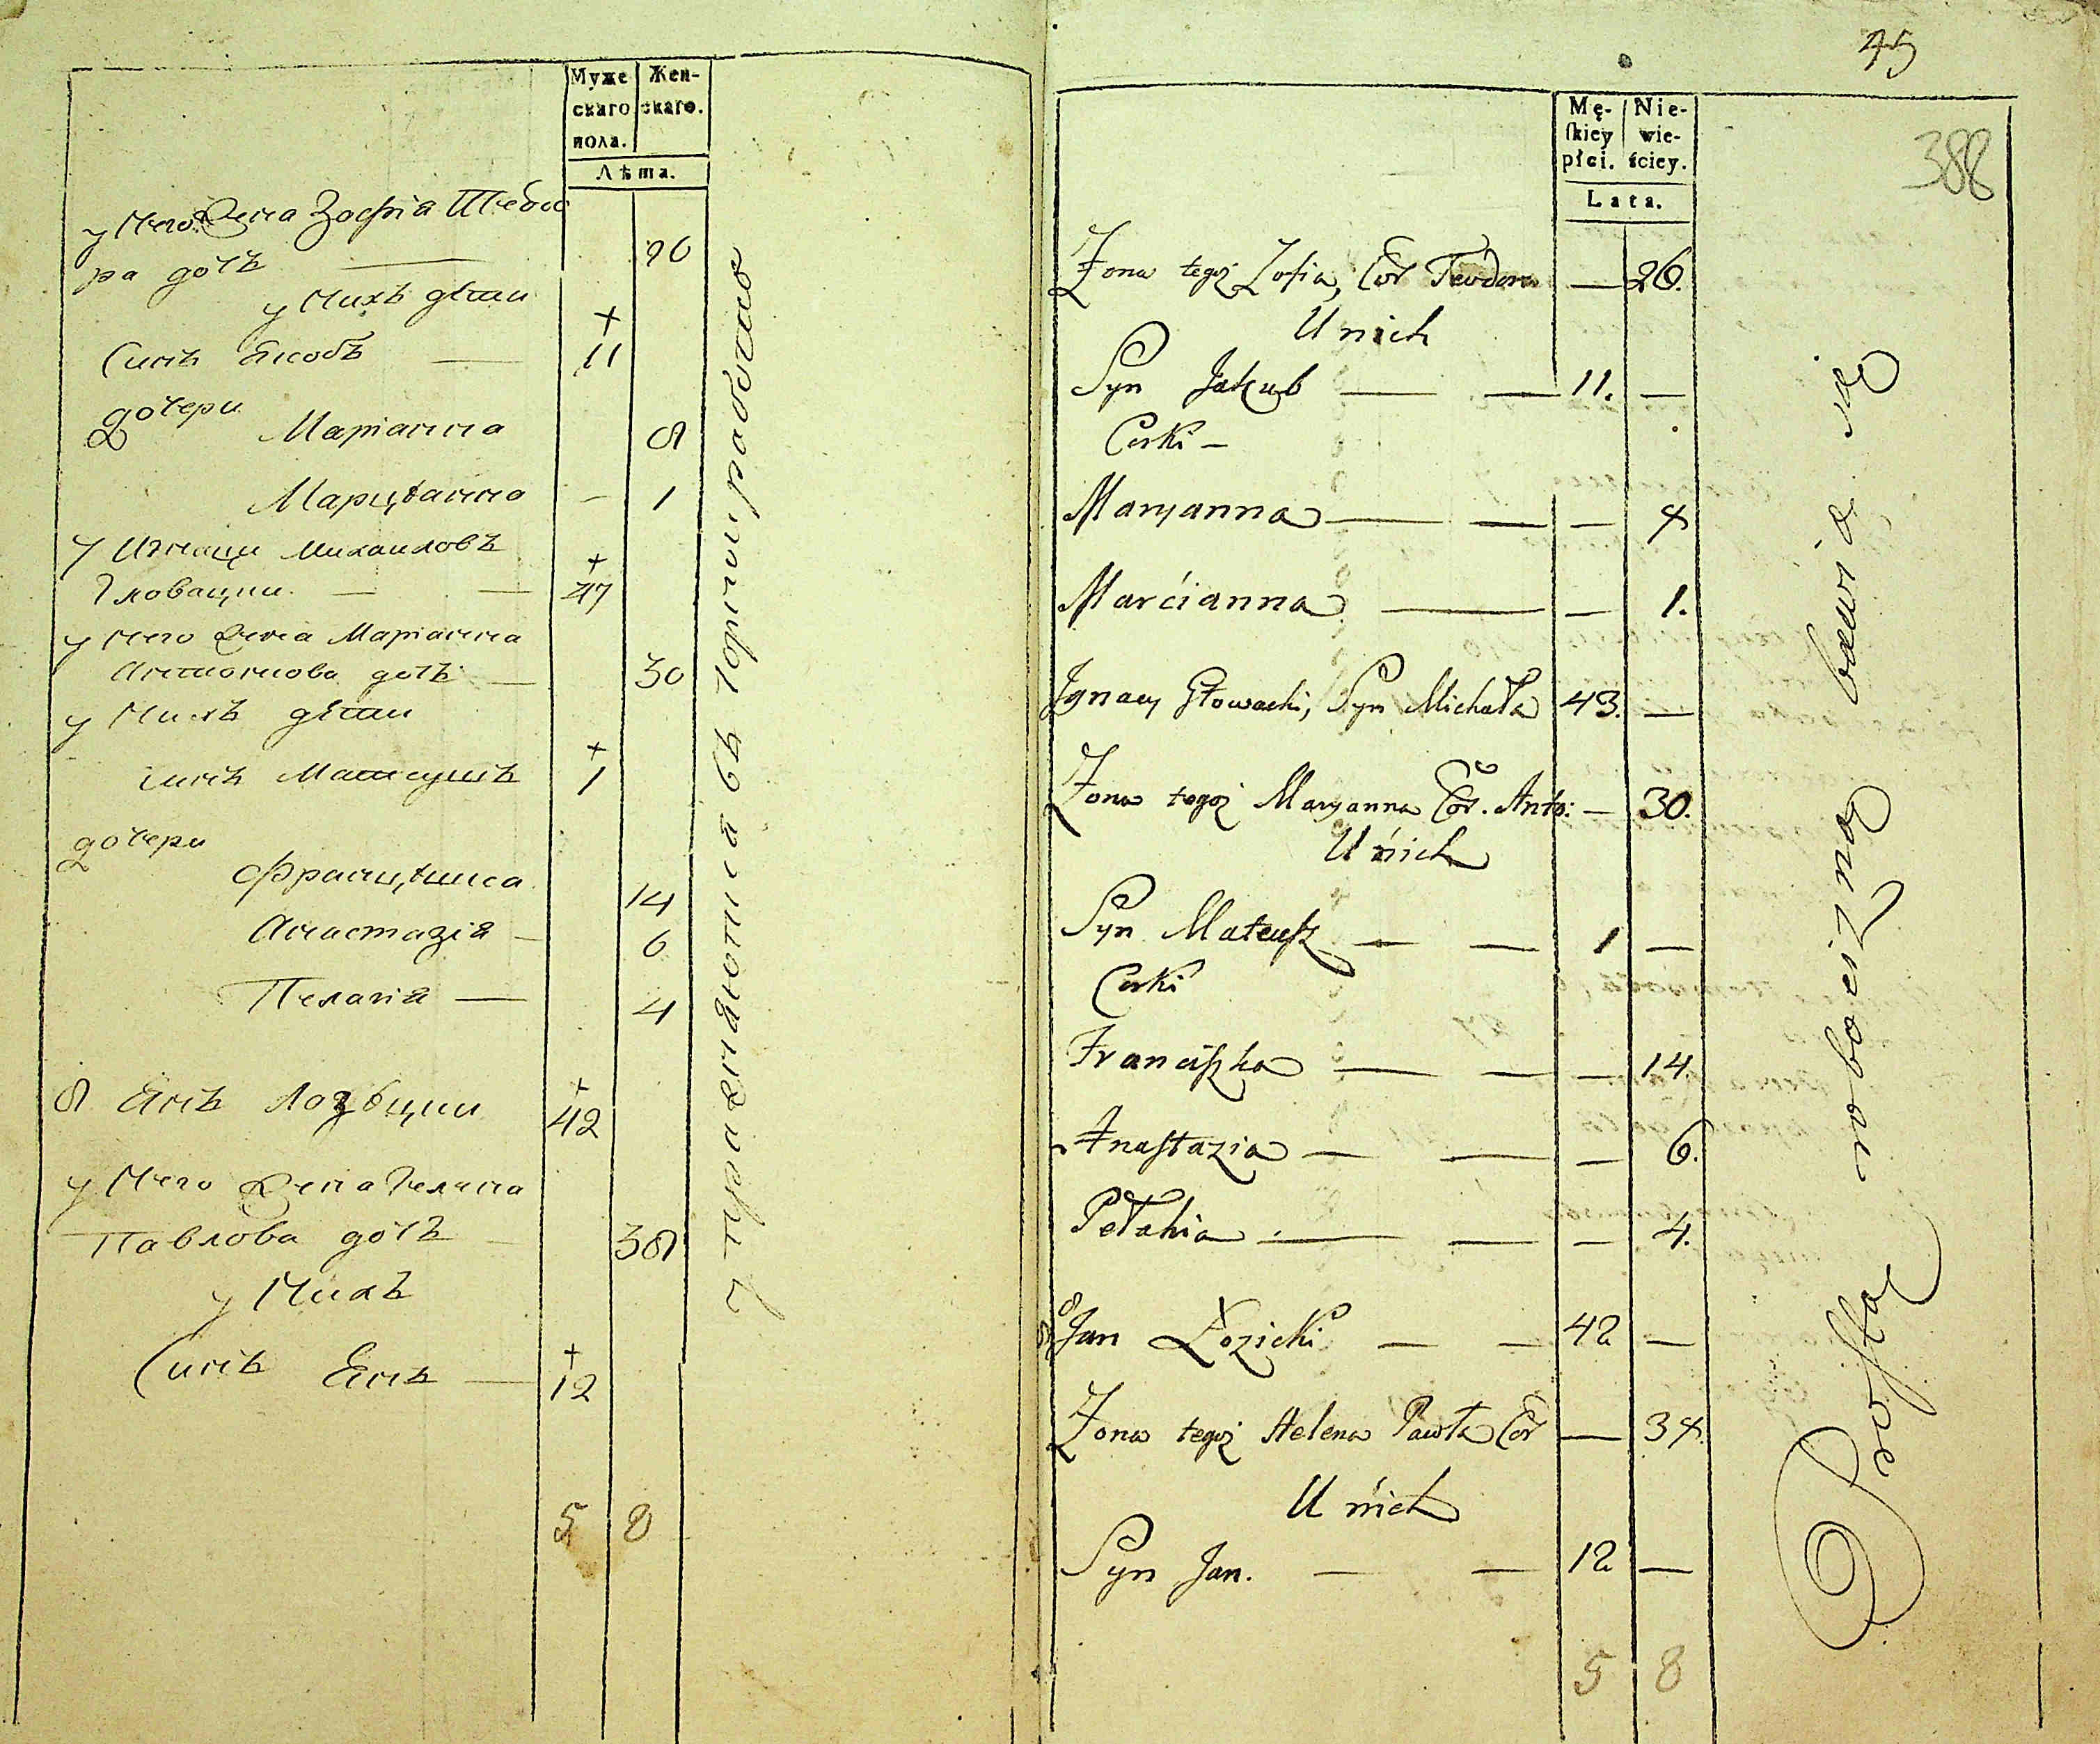 Муже
скаго
пола.
Жен-
скаго.
Лѣта.
у него Жена Зофіа Шебос
ра дочь — 26
у нихъ дѣти
Синъ Якобъ — + 11
дочери
Маріанна 8
Марцѣанна - 1
7 Игнаци Михаиловъ
Гловацки — — + 47
у него Жена Маріанна
Антонова дочь — 30
у нихъ дѣти
синъ Матеушъ + 1
дочери
Францѣшка 14
Анастазіа — 6
Пелагіа — 4
8 Янъ Лозѣцки + 42
у него Жена Гелена
Павлова дочь — 38
у нихъ
Синъ Янъ — + 12
5 8
упражняются въ чорной работою
45
388
Mę-
ſkiey
płci.
Nie-
wie-
ściey.
Lata.
Żona tegoż Zofia, Cór Teodora — 26.
U nich
Syn Jakub — — 11. —
Corki —
Maryanna — — — 8
Marcianna — — 1.
Jgnacy Głowacki, Syn Michała 43. —
Żona tegoż Maryanna Cór. Anto: — 30.
U nich
Syn Mateuſz — — 1 —
Corki
Franciſzka — — — 14.
Anaſtazia — — — 6.
Pełahia — — — 4.
8 Jan Łozicki — — 42 —
Żona tegoż Helena Pawła Cór — 38
U nich
Syn Jan. — — 12 —
5 8
Proſtą roboćizną bawią się